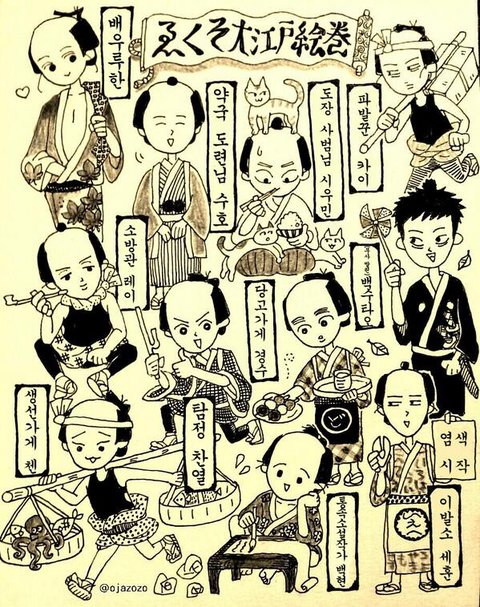 ゑくそ大江戸絵巻
배우루한
약국 도련님 수호
도장 사범님 시우민
파발꾼 카이
소방관 레이
당고가게 경수
백수타오
생선가게 첸
탐정 찬열
통속소설작가 백현
염색
시작
이발소 세훈
@ojazozo